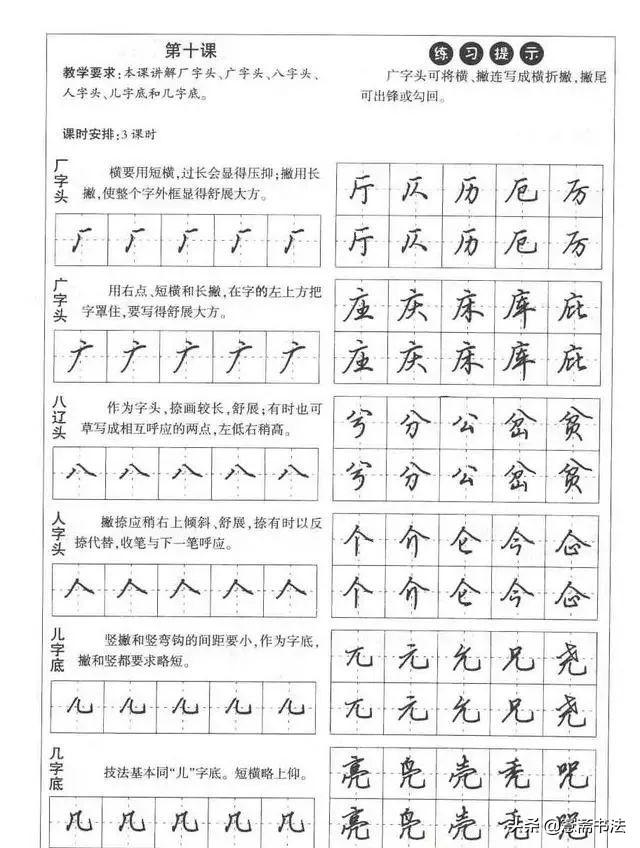 第十课
教学要求:本课讲解厂字头、广字头、八字头、
人字头、儿字底和几字底。
课时安排:3课时
练习提示
广字头可将横、撇连写成横折撇,撇尾
可出锋或勾回。
厂字头
横要用短横,过长会显得压抑;撇用长
撇,使整个字外框显得舒展大方。
厂 厂 厂 厂 厂
厅 仄 历 厄 厉
厅 仄 历 厄 厉
广字头
用右点、短横和长撇,在字的左上方把
字罩住,要写得舒展大方。
广 广 广 广 广
座 庆 床 库 庇
座 庆 床 库 庇
八辽头
作为字头,捺画较长,舒展;有时也可
草写成相互呼应的两点,左低右稍高。
八 八 八 八 八
兮 分 公 岔 贫
兮 分 公 岔 贫
人字头
撇捺应稍右上倾斜、舒展,捺有时以反
捺代替,收笔与下一笔呼应。
人 人 人 人 人
个 介 仑 今
个 介 仑 今
儿字底
竖撇和竖弯钩的间距要小,作为字底,
撇和竖都要求略短。
儿 儿 儿 儿 儿
兀 元 允 兄 尧
兀 元 允 兄 尧
几字底
技法基本同“儿”字底。短横略上仰。
几 几 几 几 几
亮 凫 壳 秃 咒
亮 凫 壳 咒
头条 @慧斋书法